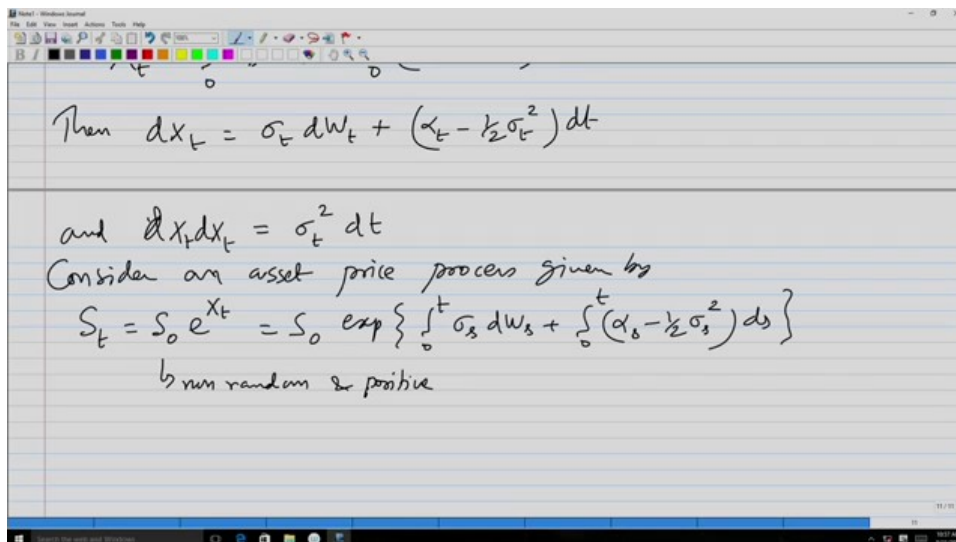 Note1 - Windows Journal
File Edit View Insert Actions Tools Help
B I
X_t ∫_0 ∫_0 (
Then dX_t = σ_t dW_t + (α_t - 1/2 σ_t^2) dt
and dX_t dX_t = σ_t^2 dt
Consider an asset price process given by
S_t = S_0 e^{X_t} = S_0 exp{ ∫_0^t σ_s dW_s + ∫_0^t (α_s - 1/2 σ_s^2) ds }
↳ non random & positive
11 / 11
11
Search the web and Windows